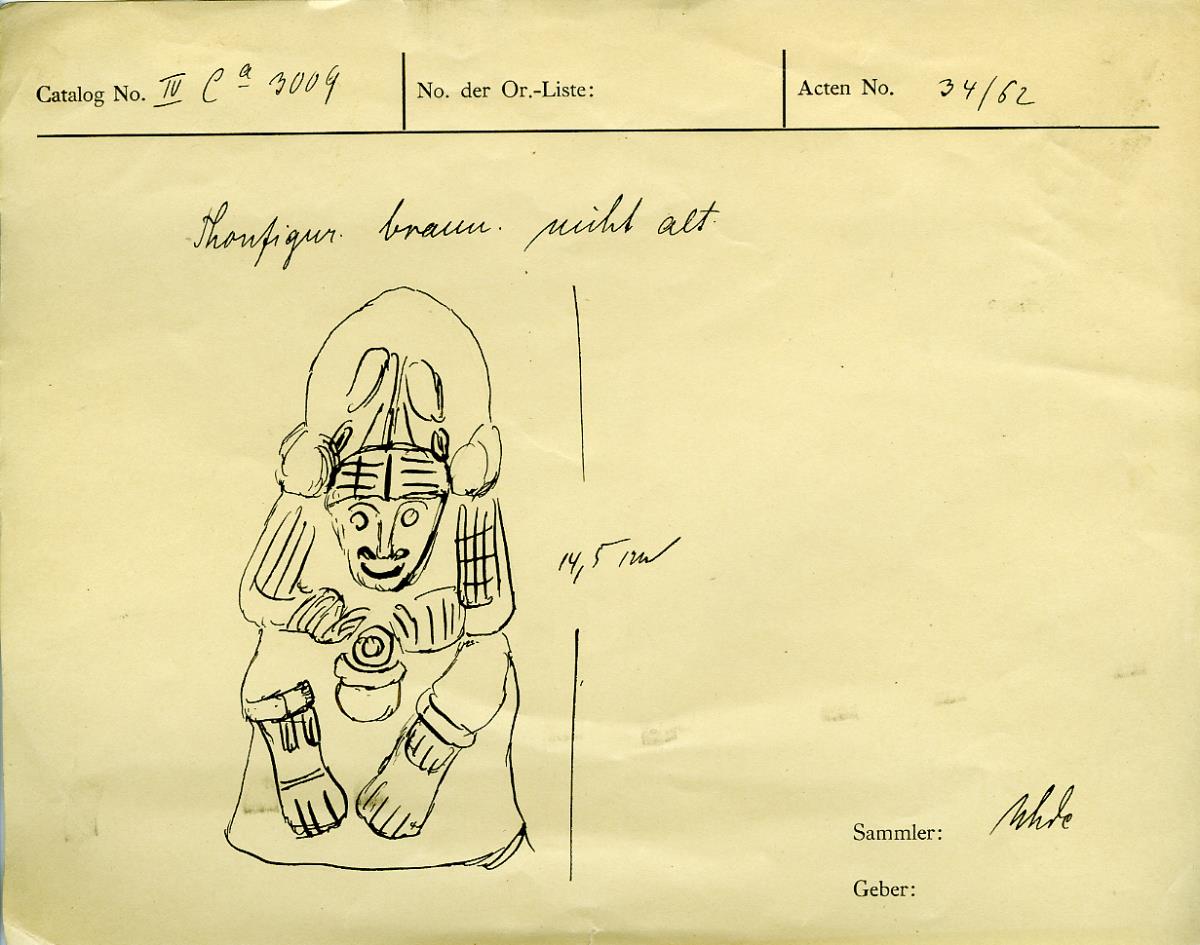 Catalog No. IV Ca 3009 No. der Or.-Liste: Acten No. 34/62
Thonfigur. braun. nicht alt.
14,5 cm
Sammler: Uhde
Geber: